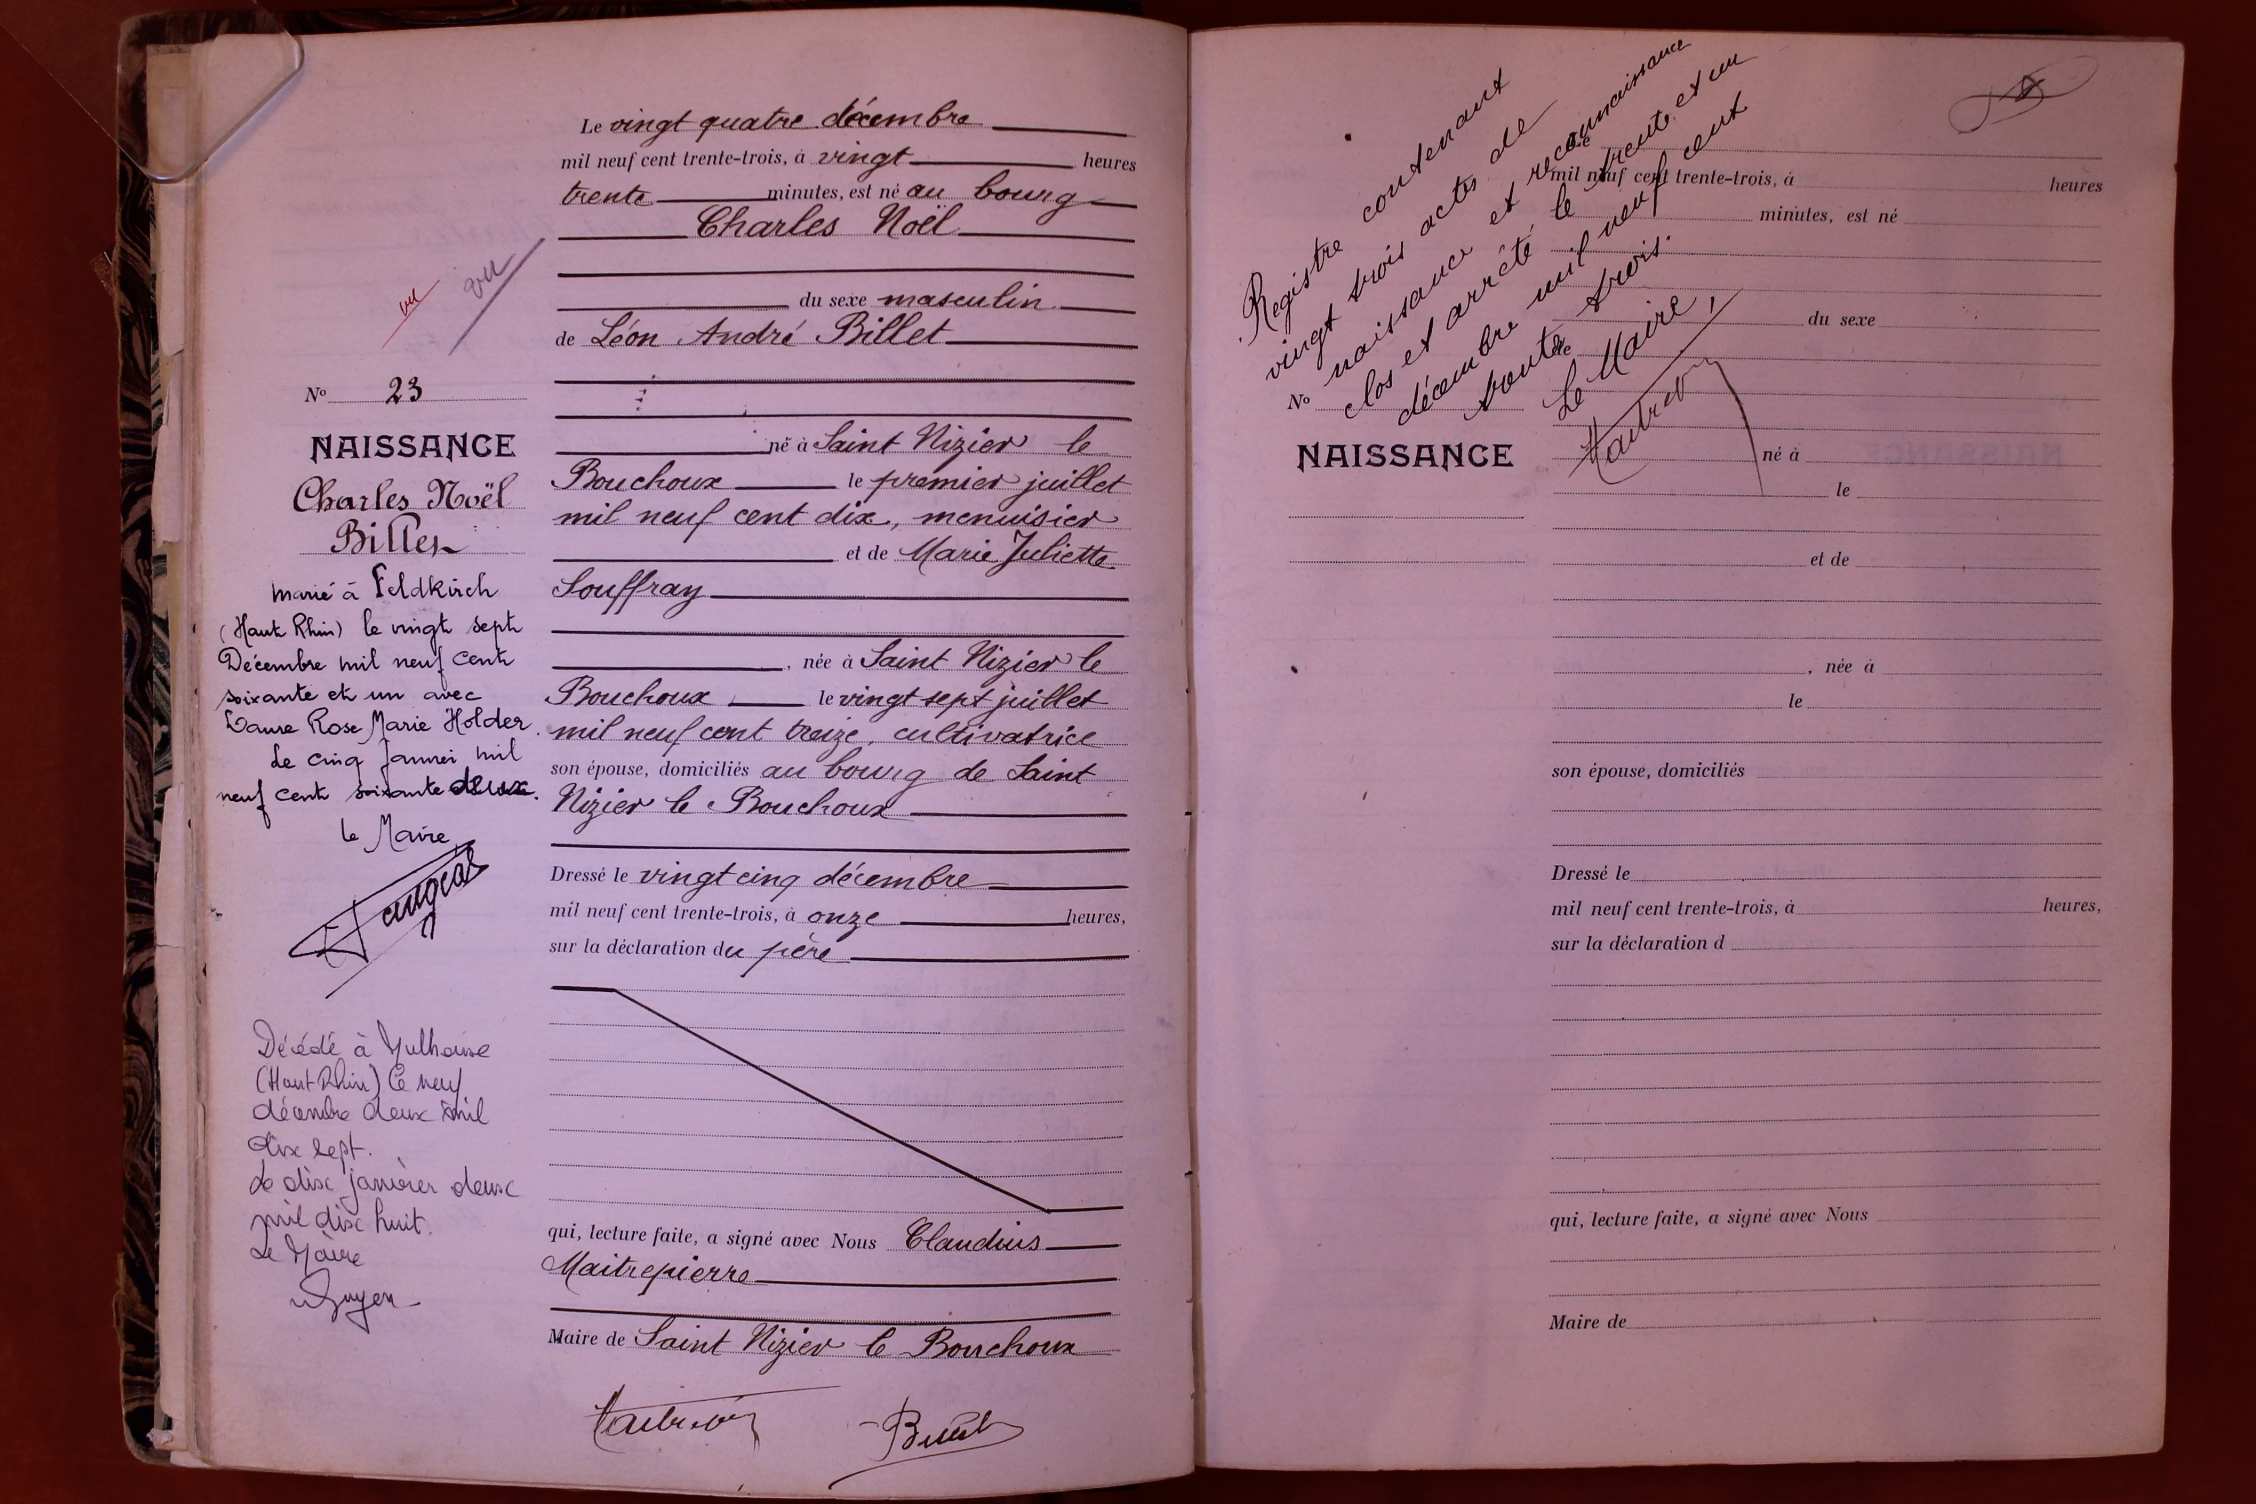 Le vingt quatre décembre
mil neuf cent trente-trois, à vingt heures
trente minutes, est né au bourg
Charles Noël
du sexe masculin
de Léon André Billet
né à Saint Nizier le
Bouchoux le premier juillet
mil neuf cent dix, menuisier
et de Marie Juliette
Souffray
, née à Saint Nizier le
Bouchoux le vingt sept juillet
mil neuf cent treize, cultivatrice
son épouse, domiciliés au bourg de Saint
Nizier le Bouchoux
Dressé le vingt cinq décembre
mil neuf cent trente-trois, à onze heures,
sur la déclaration du père
qui, lecture faite, a signé avec Nous Claudius
Maitrepierre
Maire de Saint Nizier le Bouchoux
Billet
vu
vu
No 23
NAISSANCE
Charles Noël
Billet
marié à Feldkirch
(Haut Rhin) le vingt sept
Décembre mil neuf cent
soixante et un avec
Rose Marie Holder.
Le cinq Janvier mil
neuf cent soixante deux.
le Maire,
Décédé à Mulhouse
(Haut Rhin) le neuf
décembre deux mil
dix sept.
Le dix janvier deux
mil dix huit.
Le Maire
Registre contenant
vingt trois actes de
naissance et reconnaissance
clos et arrêté le trente et un
décembre mil neuf cent
trente trois.
Le Maire,
mil neuf cent trente-trois, à heures
minutes, est né
du sexe
de
No
NAISSANCE
né à
le
et de
, née à
le
son épouse, domiciliés
Dressé le
mil neuf cent trente-trois, à heures,
sur la déclaration d
qui, lecture faite, a signé avec Nous
Maire de